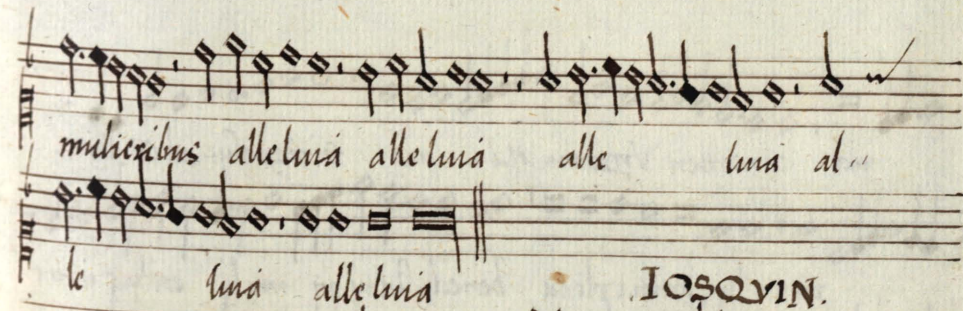 mulieribus alleluia alleluia alle luia al
le luia alleluia IOSQVIN.